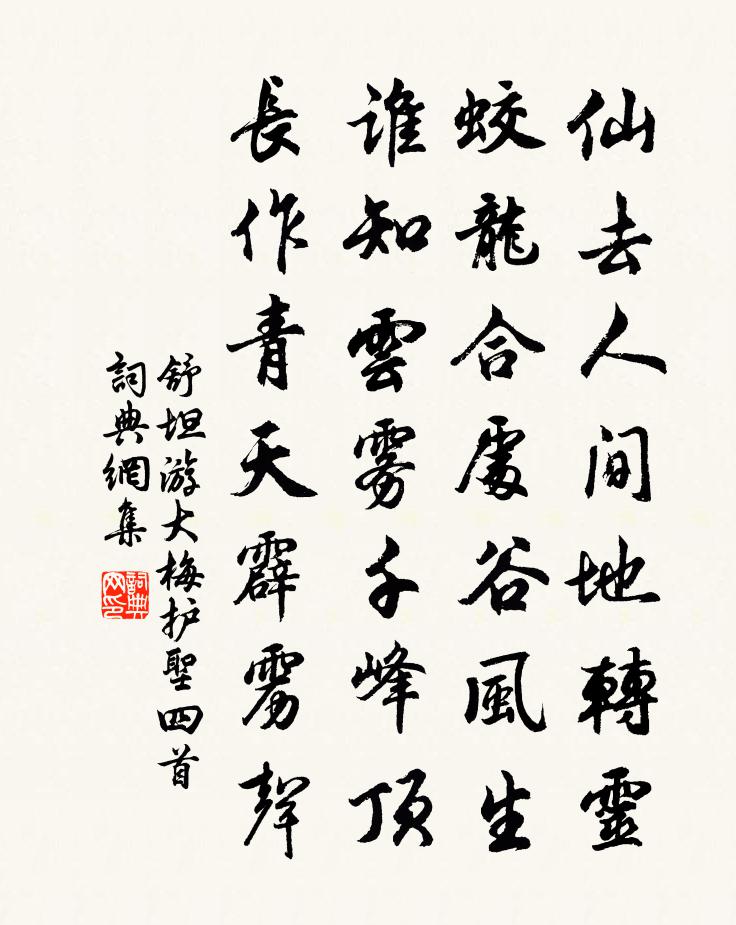 仙去人間地轉靈
蛟龍合處谷風生
誰知雲霧千峰頂
長作青天霹雳聲
舒坦游大梅护聖四首
詞典網集
詞典网印